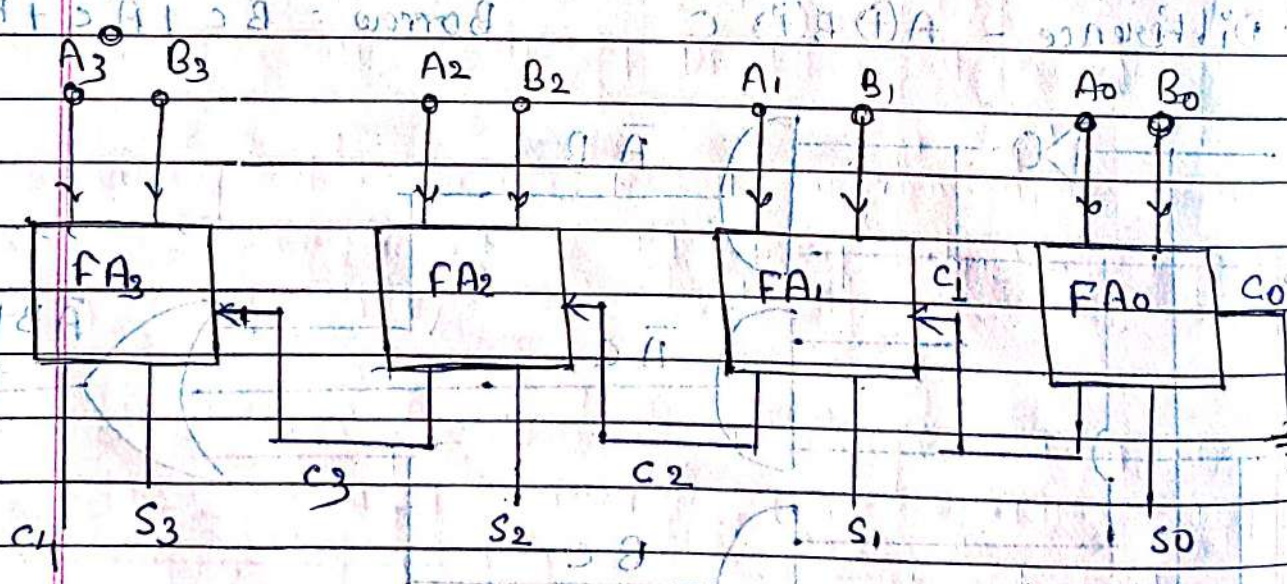 A3 B3 A2 B2 A1 B1 A0 B0
FA3 FA2 FA1 C1 FA0 C0
C3 C2
C1 S3 S2 S1 S0